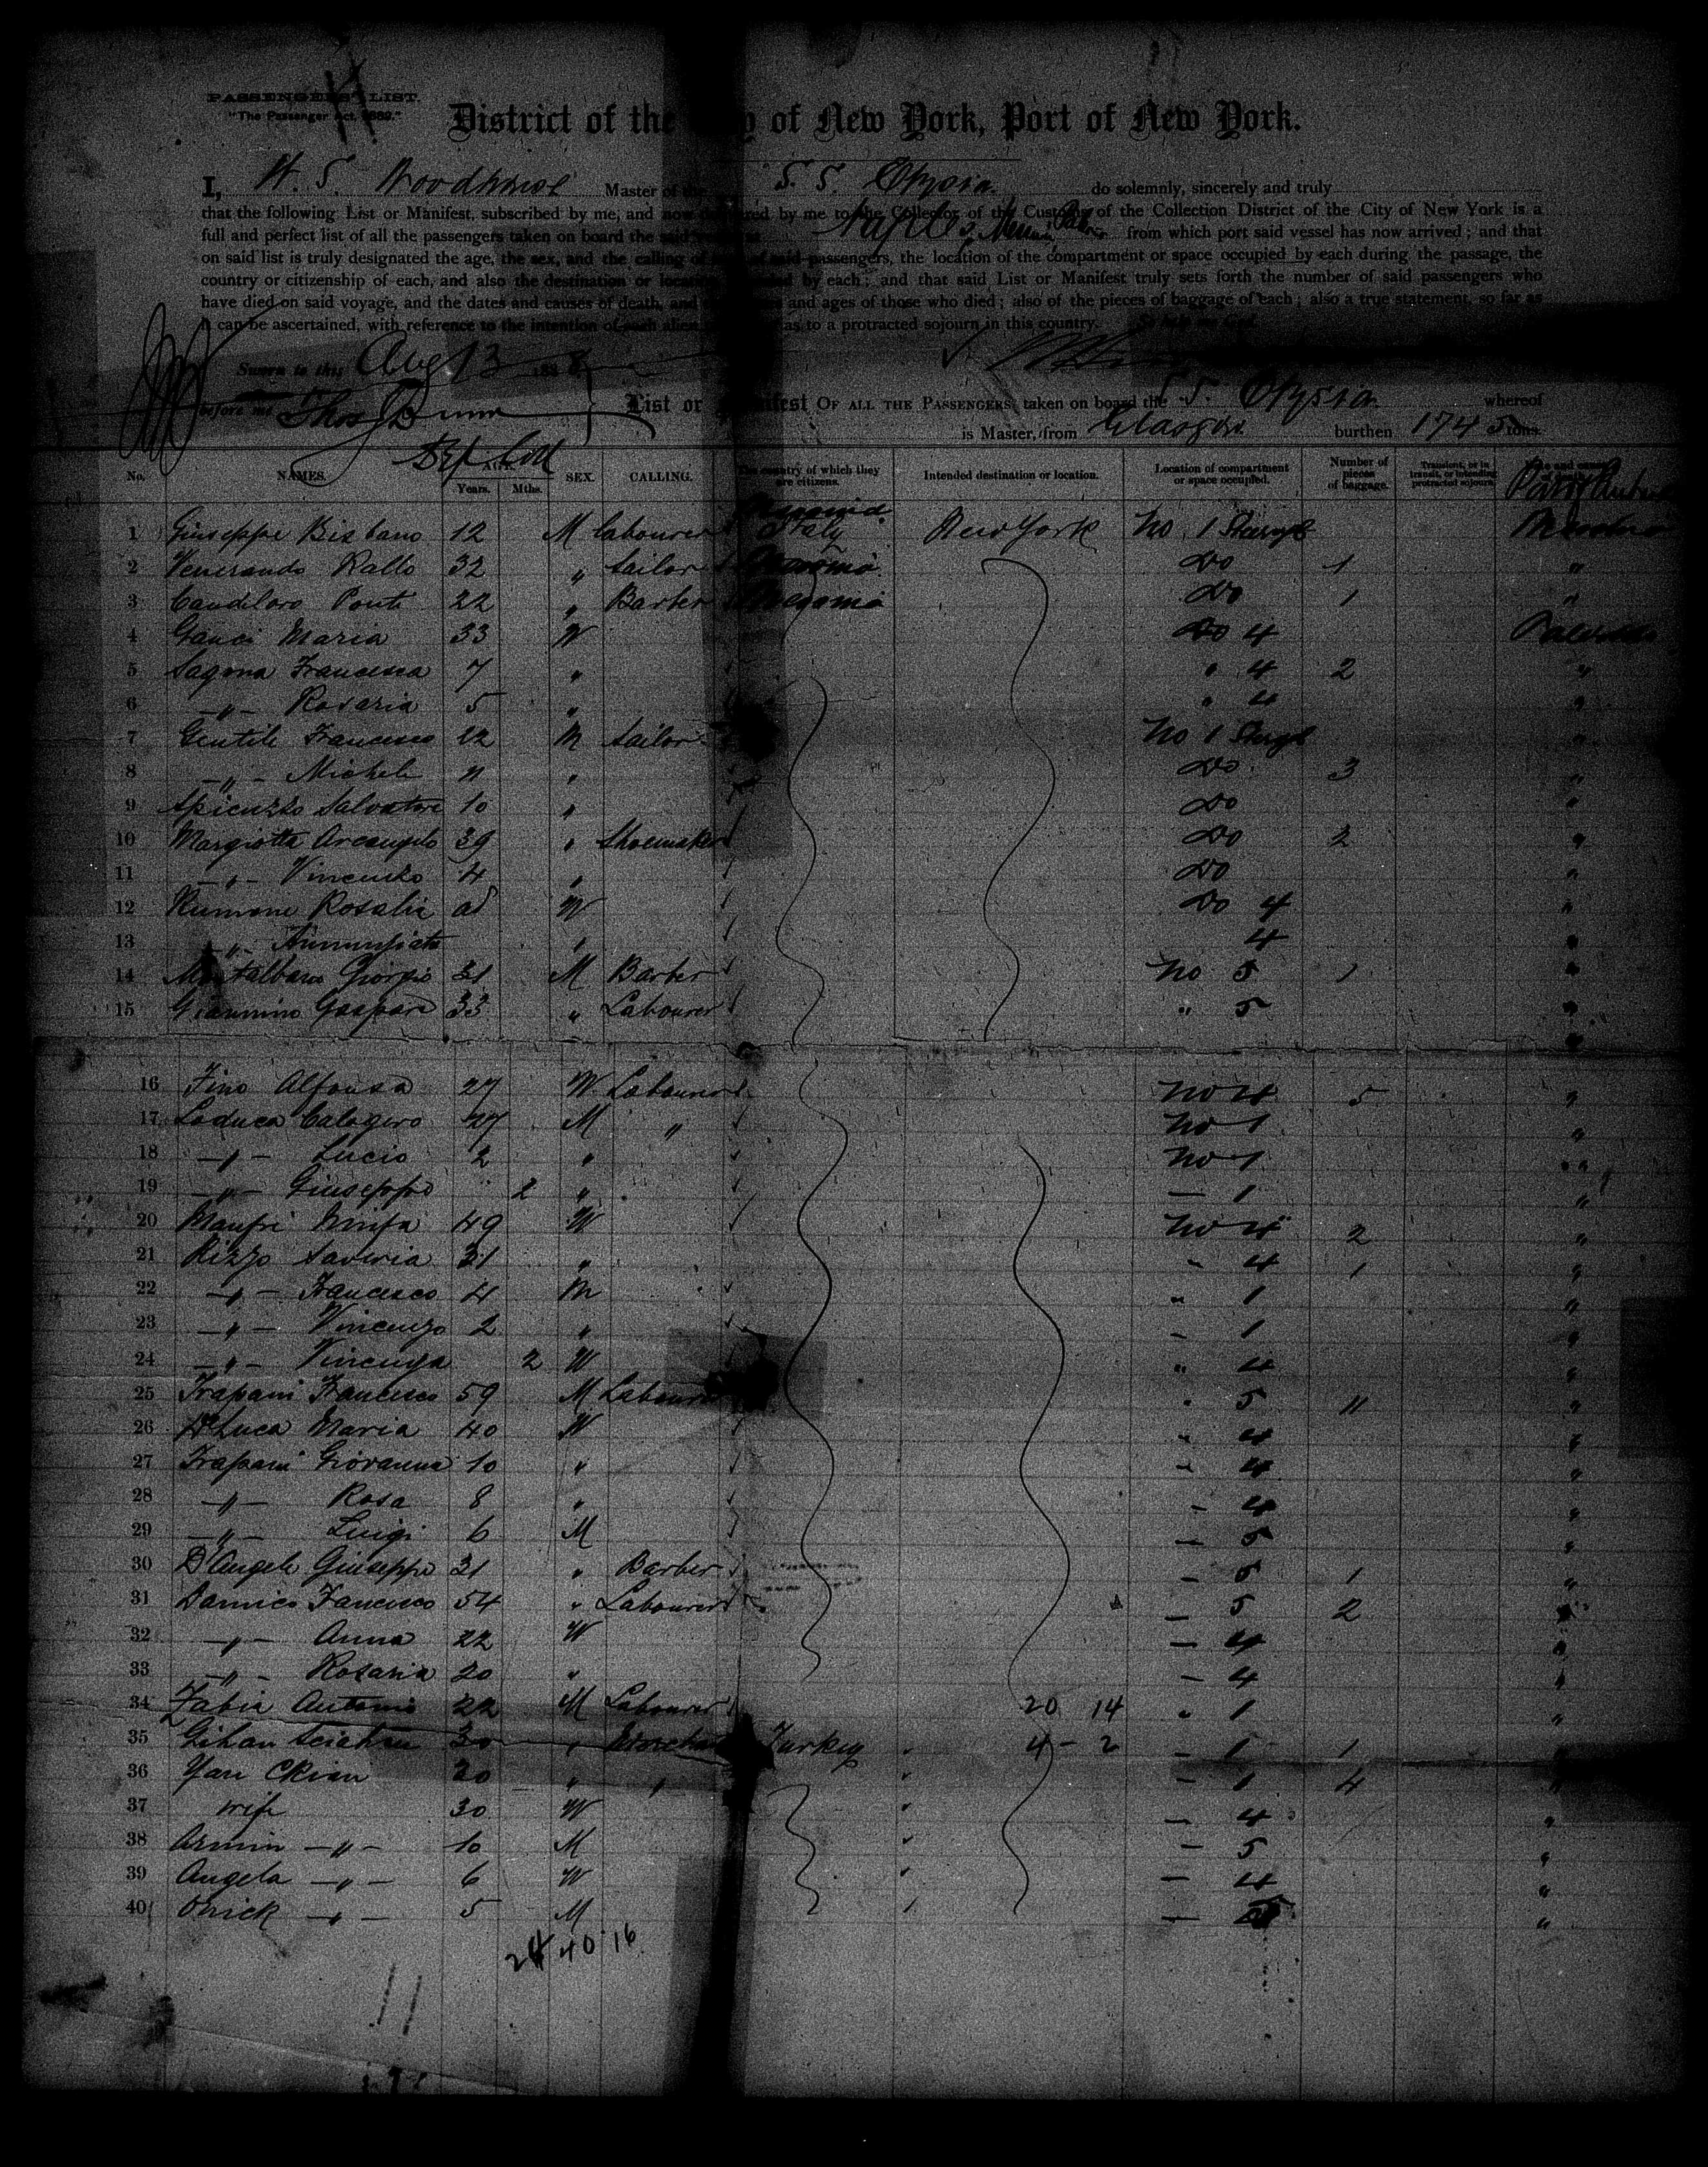 PASSENGERS' LIST.
"The Passenger Act, 1882."
District of the City of New York, Port of New York.
I, W. S. Woodhouse Master of the S. S. Elysia do solemnly, sincerely and truly
that the following List or Manifest, subscribed by me, and now delivered by me to the Collector of the Customs of the Collection District of the City of New York is a
full and perfect list of all the passengers taken on board the said Naples, from which port said vessel has now arrived; and that
on said list is truly designated the age, the sex, and the calling of each of said passengers, the location of the compartment or space occupied by each during the passage, the
country or citizenship of each, and also the destination or location intended by each; and that said List or Manifest truly sets forth the number of said passengers who
have died on said voyage, and the dates and causes of death, and the names and ages of those who died; also of the pieces of baggage of each; also a true statement, so far as
it can be ascertained, with reference to the intention of each alien passenger as to a protracted sojourn in this country. So help me God.
Sworn to this Aug 13 188 8
before me Thos
List or Manifest OF ALL THE PASSENGERS taken on board the S. S. Elysia whereof
is Master, from Glasgow burthen 1745 tons.
No. NAMES. AGE. Years. Mths. SEX. CALLING. The country of which they are citizens. Intended destination or location. Location of compartment or space occupied. Number of pieces of baggage. Transient, or in transit, or intending protracted sojourn.
1 Giuseppe Bisbano 12 M Labourer Italy New York No 1 Steerage
2 Venerando Rallo 32 " Sailor Do 1 "
3 Candiloro Ponti 22 " Barber Do 1 "
4 Gauci Maria 33 W Do 4 Palermo
5 Sagona Francesca 7 " " 4 2 "
6 -"- Rosaria 5 " " 4 "
7 Gentile Francesco 12 M Sailor No 1 Steerage "
8 -"- Michele 11 " Do 3 "
9 Salvatore 10 " Do "
10 Margiotta Arcangelo 39 " Shoemaker Do 2 "
11 -"- Vincenzo 4 " Do "
12 Rosalia ad W Do 4 "
13 -"- Annunziata " 4 "
14 Montalbano Giorgio 31 M Barber No 5 1 "
15 Giannino Gaspare 33 " Labourer " 5 "
16 Fino Alfonsa 27 W Labourer No 4 5 "
17 Loduca Calogero 27 M " No 1 "
18 -"- Lucio 2 " No 1 "
19 -"- Giuseppe 2 " — 1 "
20 Manfri Ninfa 49 W No 4 2 "
21 Rizzo Saveria 31 " - 4 1 "
22 -"- Francesco 4 M " 1 "
23 -"- Vincenzo 2 " - 1 "
24 -"- Vincenza 2 W " 4 "
25 Trapani Francesco 59 M Labourer " 5 11 "
26 DeLuca Maria 40 W " 4 "
27 Trapani Giovanna 10 " - 4 "
28 -"- Rosa 8 " - 4 "
29 -"- Luigi 6 M — 5 "
30 D'Angelo Giuseppe 31 " Barber — 5 1 "
31 Damico Francesco 54 " Labourer — 5 2 "
32 -"- Anna 22 W — 4 "
33 -"- Rosaria 20 " - 4 "
34 Antonio 22 M Labourer 20 14 " 1 "
35 Gihan 30 " Turkey " 4 - 2 - 1 1 "
36 20 " " " - 1 4 "
37 wife 30 W " - 4 "
38 Armin -"- 10 M " — 5 "
39 Angela -"- 6 W " — 4 "
40 -"- 5 M — "
24 40 16
11